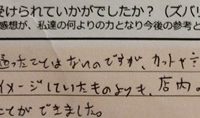 受けられていかがでしたか？（ズバリ
感想が、私達の何よりの力となり今後の参考と
通けたことはないのですが、カットやシ
イメージしていたものよりも、店内の
ことができました。